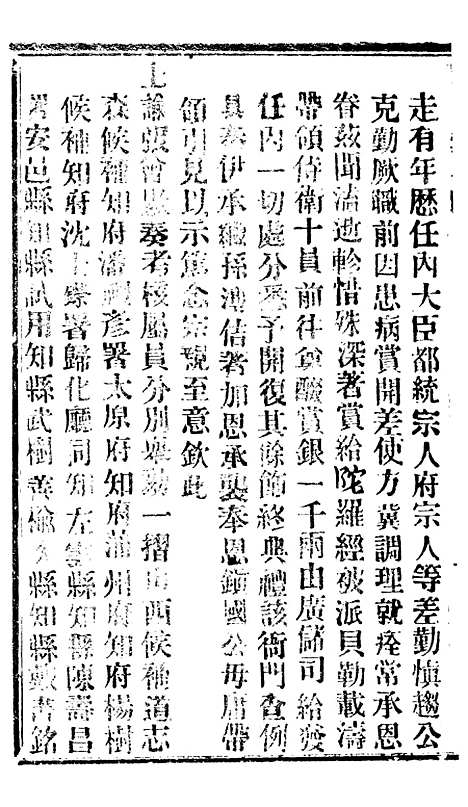 走有年歷任內大臣都統宗人府宗人等差勤慎趨公
克勤厥職前因患病賞開差使方冀調理就痊常承恩
眷茲聞溘逝軫惜殊深著賞給陀羅經被派貝勒載濤
帶領侍衛十員前往奠醊賞銀一千兩由廣儲司給發
任內一切處分悉予開復其餘飾終典禮該衙門查例
具奏伊承繼孫溥佶著加恩承襲奉恩鎮國公毋庸帶
領引見以示篤念宗親至意欽此
上諭張曾敭奏考核屬員分別舉劾一摺山西候補道志
森候補知府潘禮彥署太原府知府蒲州府知府楊樹
候補知府沈士鑅署歸化廳同知左雲縣知縣陳壽昌
署安邑縣知縣試用知縣武樹善榆次縣知縣戴書銘